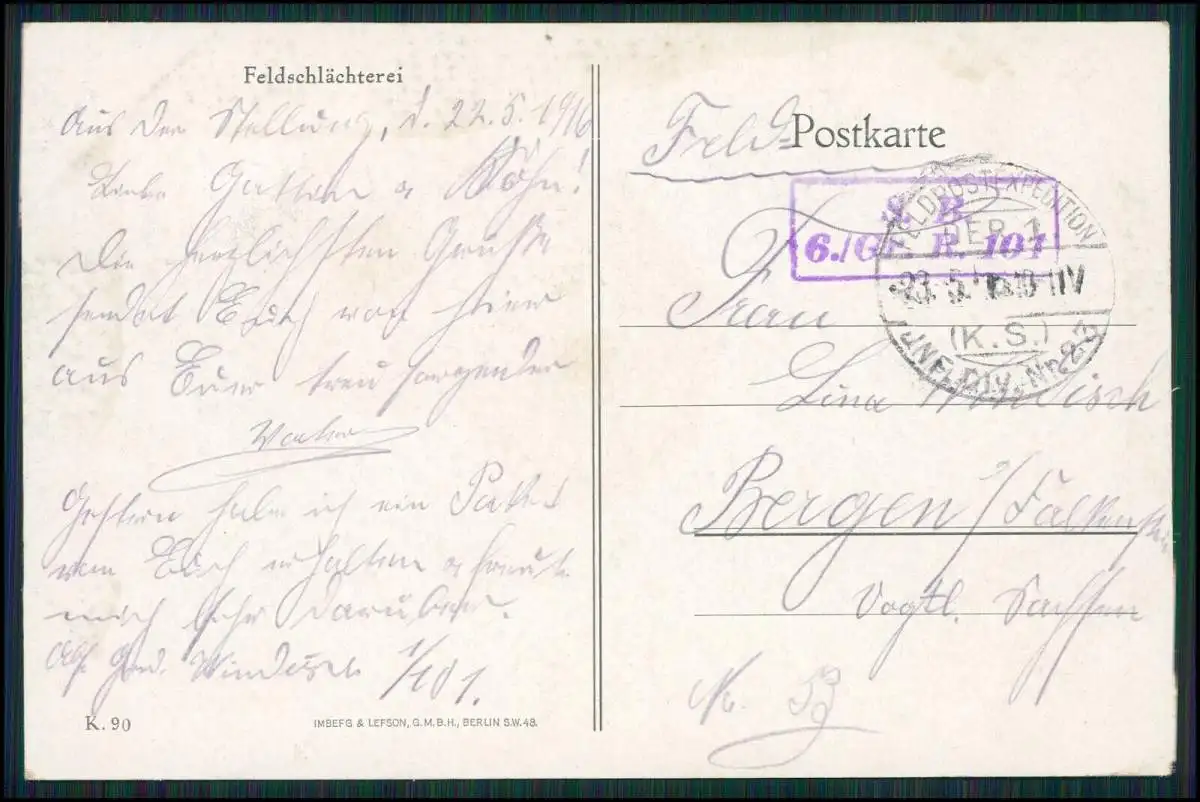 Feldschlächterei
Aus der Stellung, d. 22.5.1916
Liebe Gattin u Söhn!
Die herzlichsten Grüße
sendet Euch von hier
aus Euer treu sorgender
Vater
Gestern habe ich ein Paket
von Euch erhalten u freute
mich sehr darüber.
Abs. Windisch 1/101.
K. 90
IMBERG & LEFSON, G.M.B.H., BERLIN S.W. 48.
Feld-Postkarte
S. B.
6./Gr. R. 101
FELDPOSTEXPEDITION
DER 1
23. 5.
(K.S.)
JNF. DIV. Nr. 23
Frau
Lina Windisch
Bergen / Falkenstein
Vogtl. Sachsen